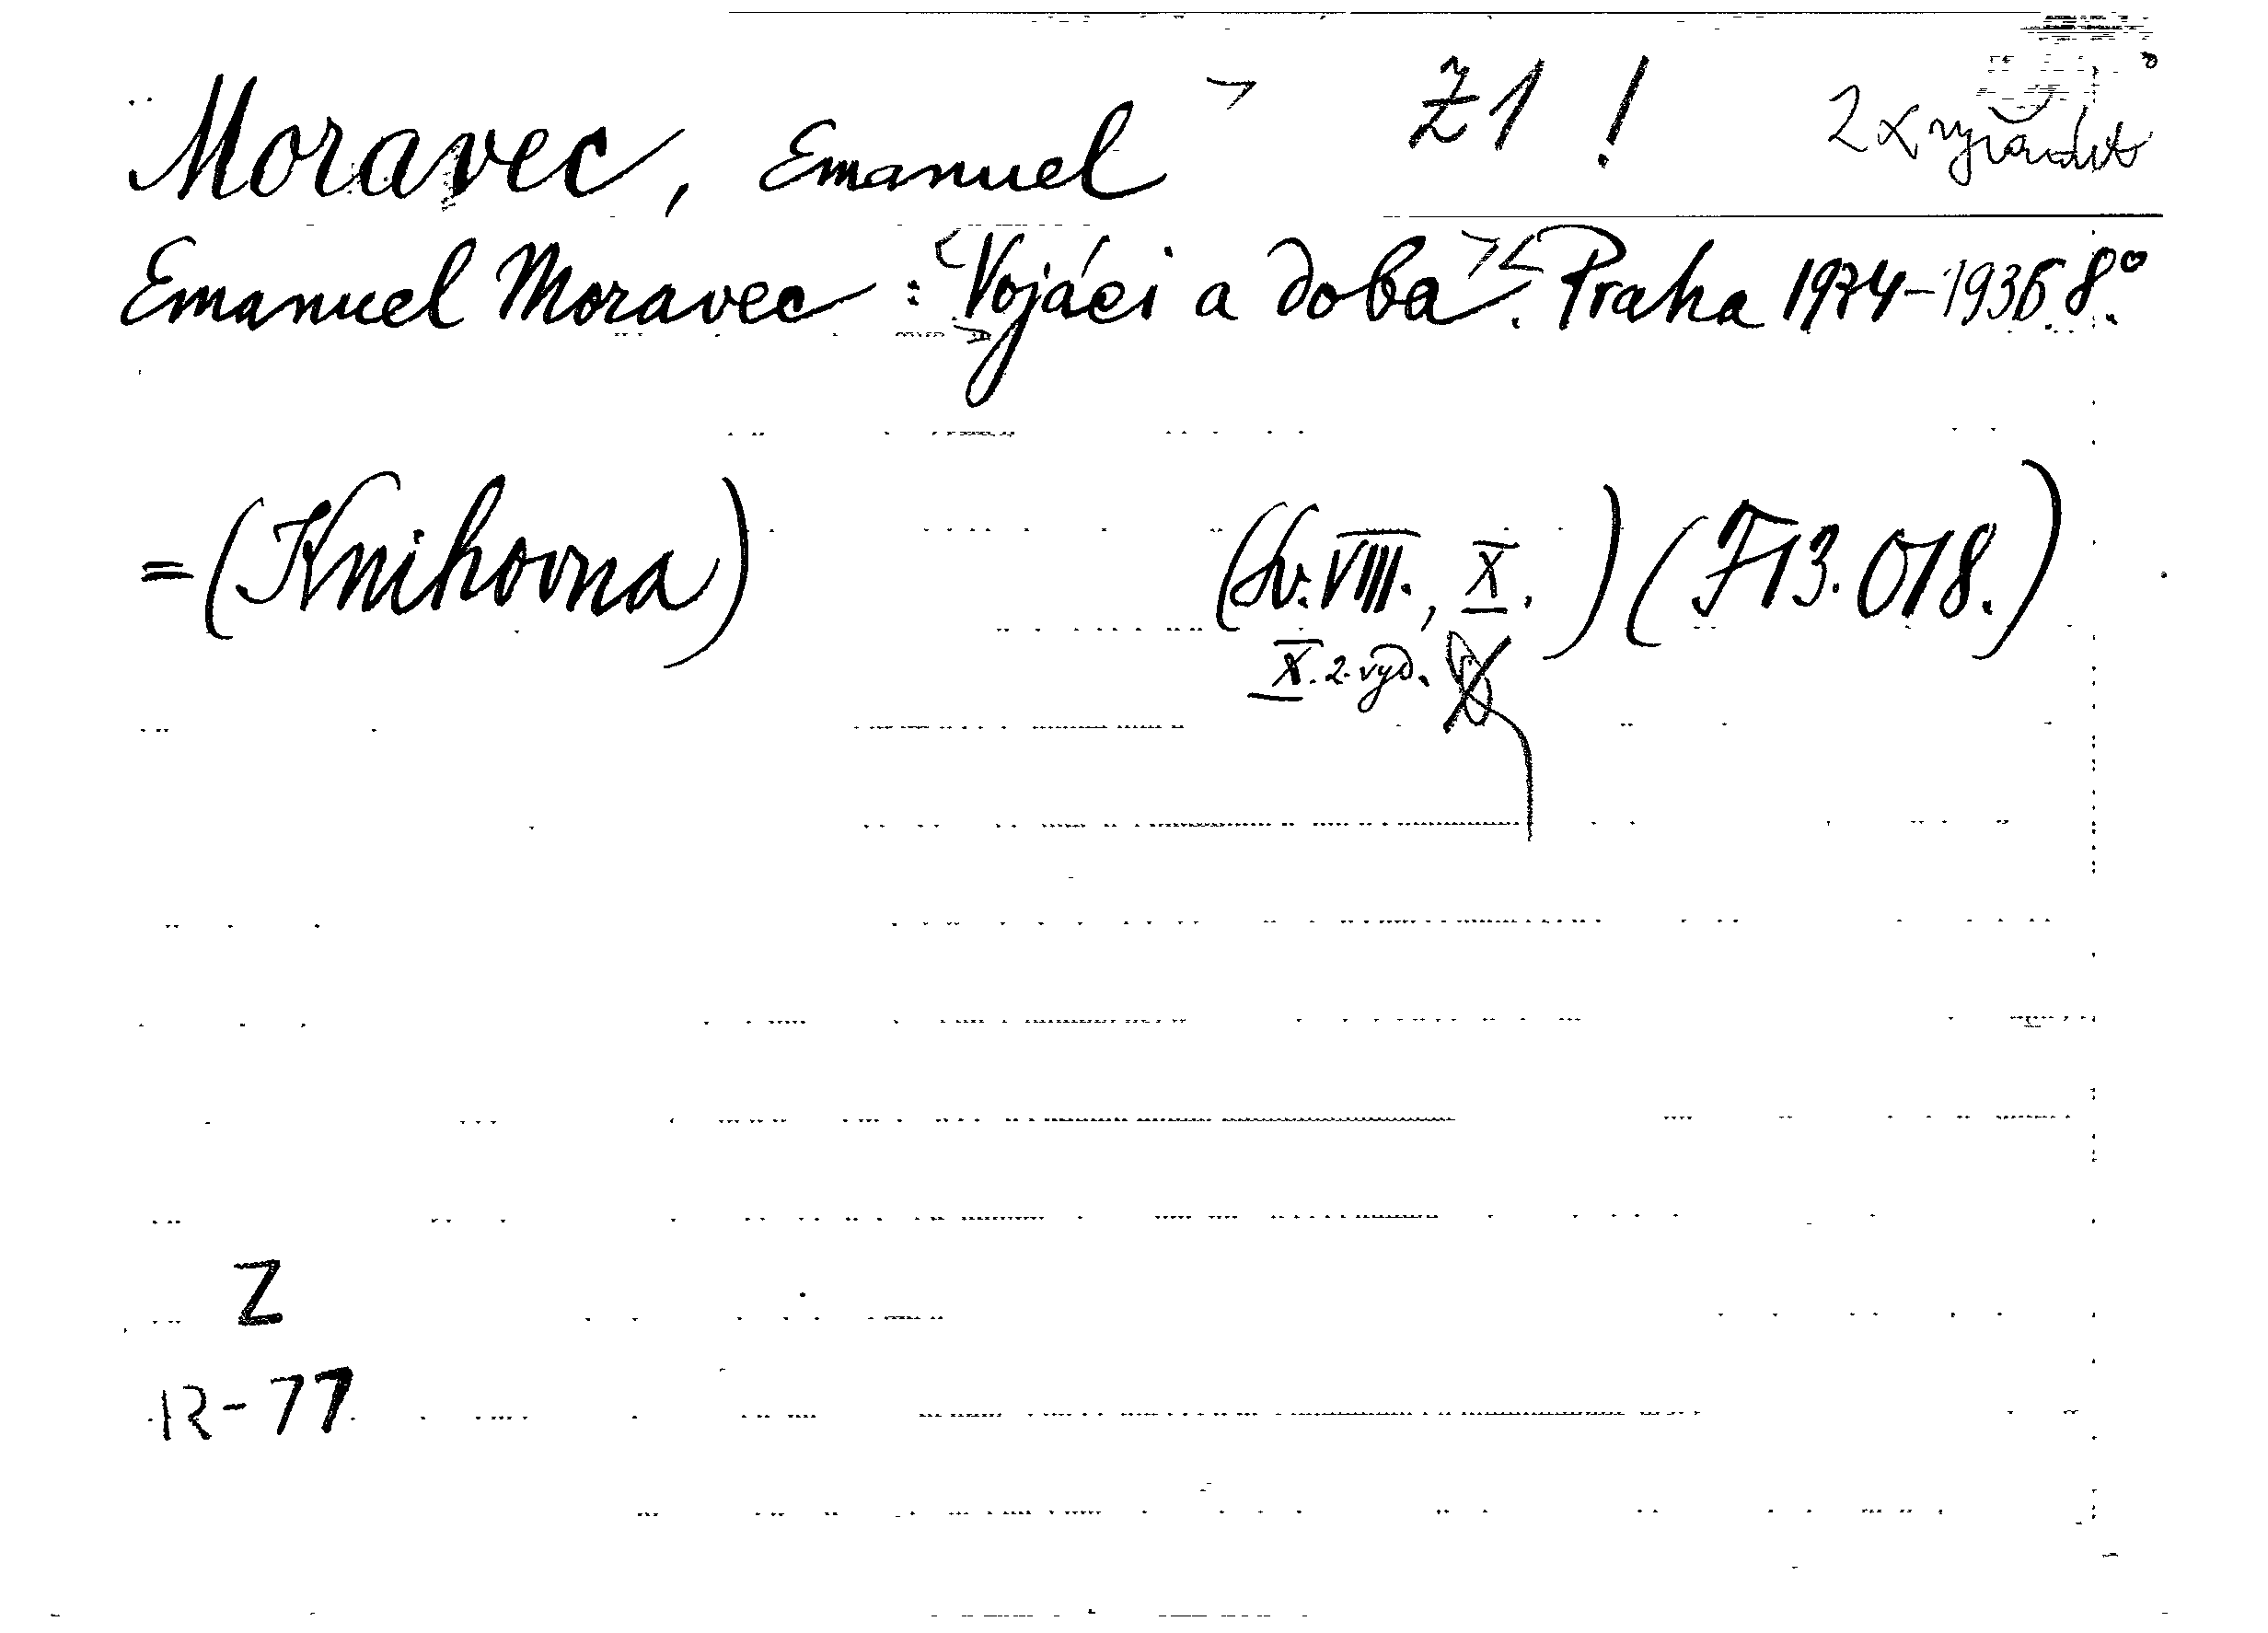 Moravec, Emanuel Z1 ! 2x vyřadit
Emanuel Moravec: Vojáci a doba. Praha 1934-1936. 8°.
=(Knihovna) (Sv. VIII., X.) (F13.018.)
X. 2. vyd.
Z
R-77